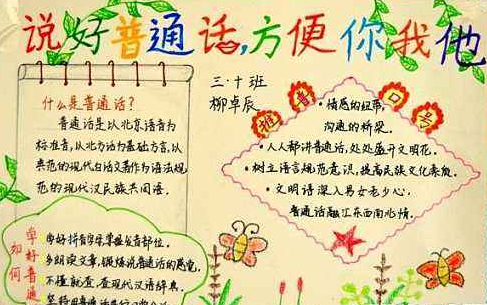 说好普通话,方便你我他
三·十班
柳卓辰
什么是普通话?
普通话是以北京语音为
标准音,以北方话为基础方言,以
典范的现代白话文著作为语法规
范的现代汉民族共同语。
推普口号
·情感的纽带,
沟通的桥梁。
·人人都讲普通话,处处盛开文明花。
·树立语言规范意识,提高民族文化素质。
·文明语深入男女老少心,
普通话融汇东西南北情。
如何
学好普通
学好拼音字母掌握发音部位,
多朗读文章,锻炼说普通话的感觉,
不懂就查,查现代汉语辞典,